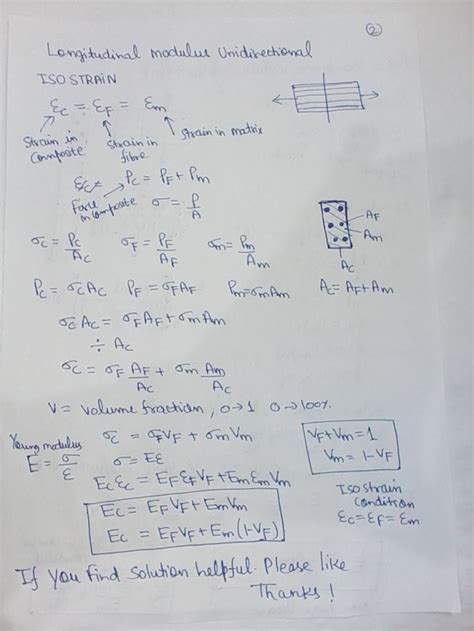 ②
Longitudinal modulus Unidirectional
ISO STRAIN
Ɛc = Ɛf = Ɛm
strain in composite
strain in fibre
strain in matrix
Pc = PF + Pm
Force in composite
σ = P/A
AF
Am
Ac
σc = Pc/Ac σF = PF/AF σm = Pm/Am
Pc = σcAc PF = σFAF Pm = σmAm Ac = AF + Am
σcAc = σFAF + σmAm
÷ Ac
σc = σF AF/Ac + σm Am/Ac
V = volume fraction, 0→1 0→100%.
Young modulus
E = σ/Ɛ
σc = σFVF + σmVm
σ = EƐ
EcƐc = EFƐFVF + EmƐmVm
Ec = EFVF + EmVm
Ec = EFVF + Em(1-VF)
VF + Vm = 1
Vm = 1-VF
Isostrain
Condition
Ɛc = ƐF = Ɛm
If you find solution helpful. Please like
Thanks!